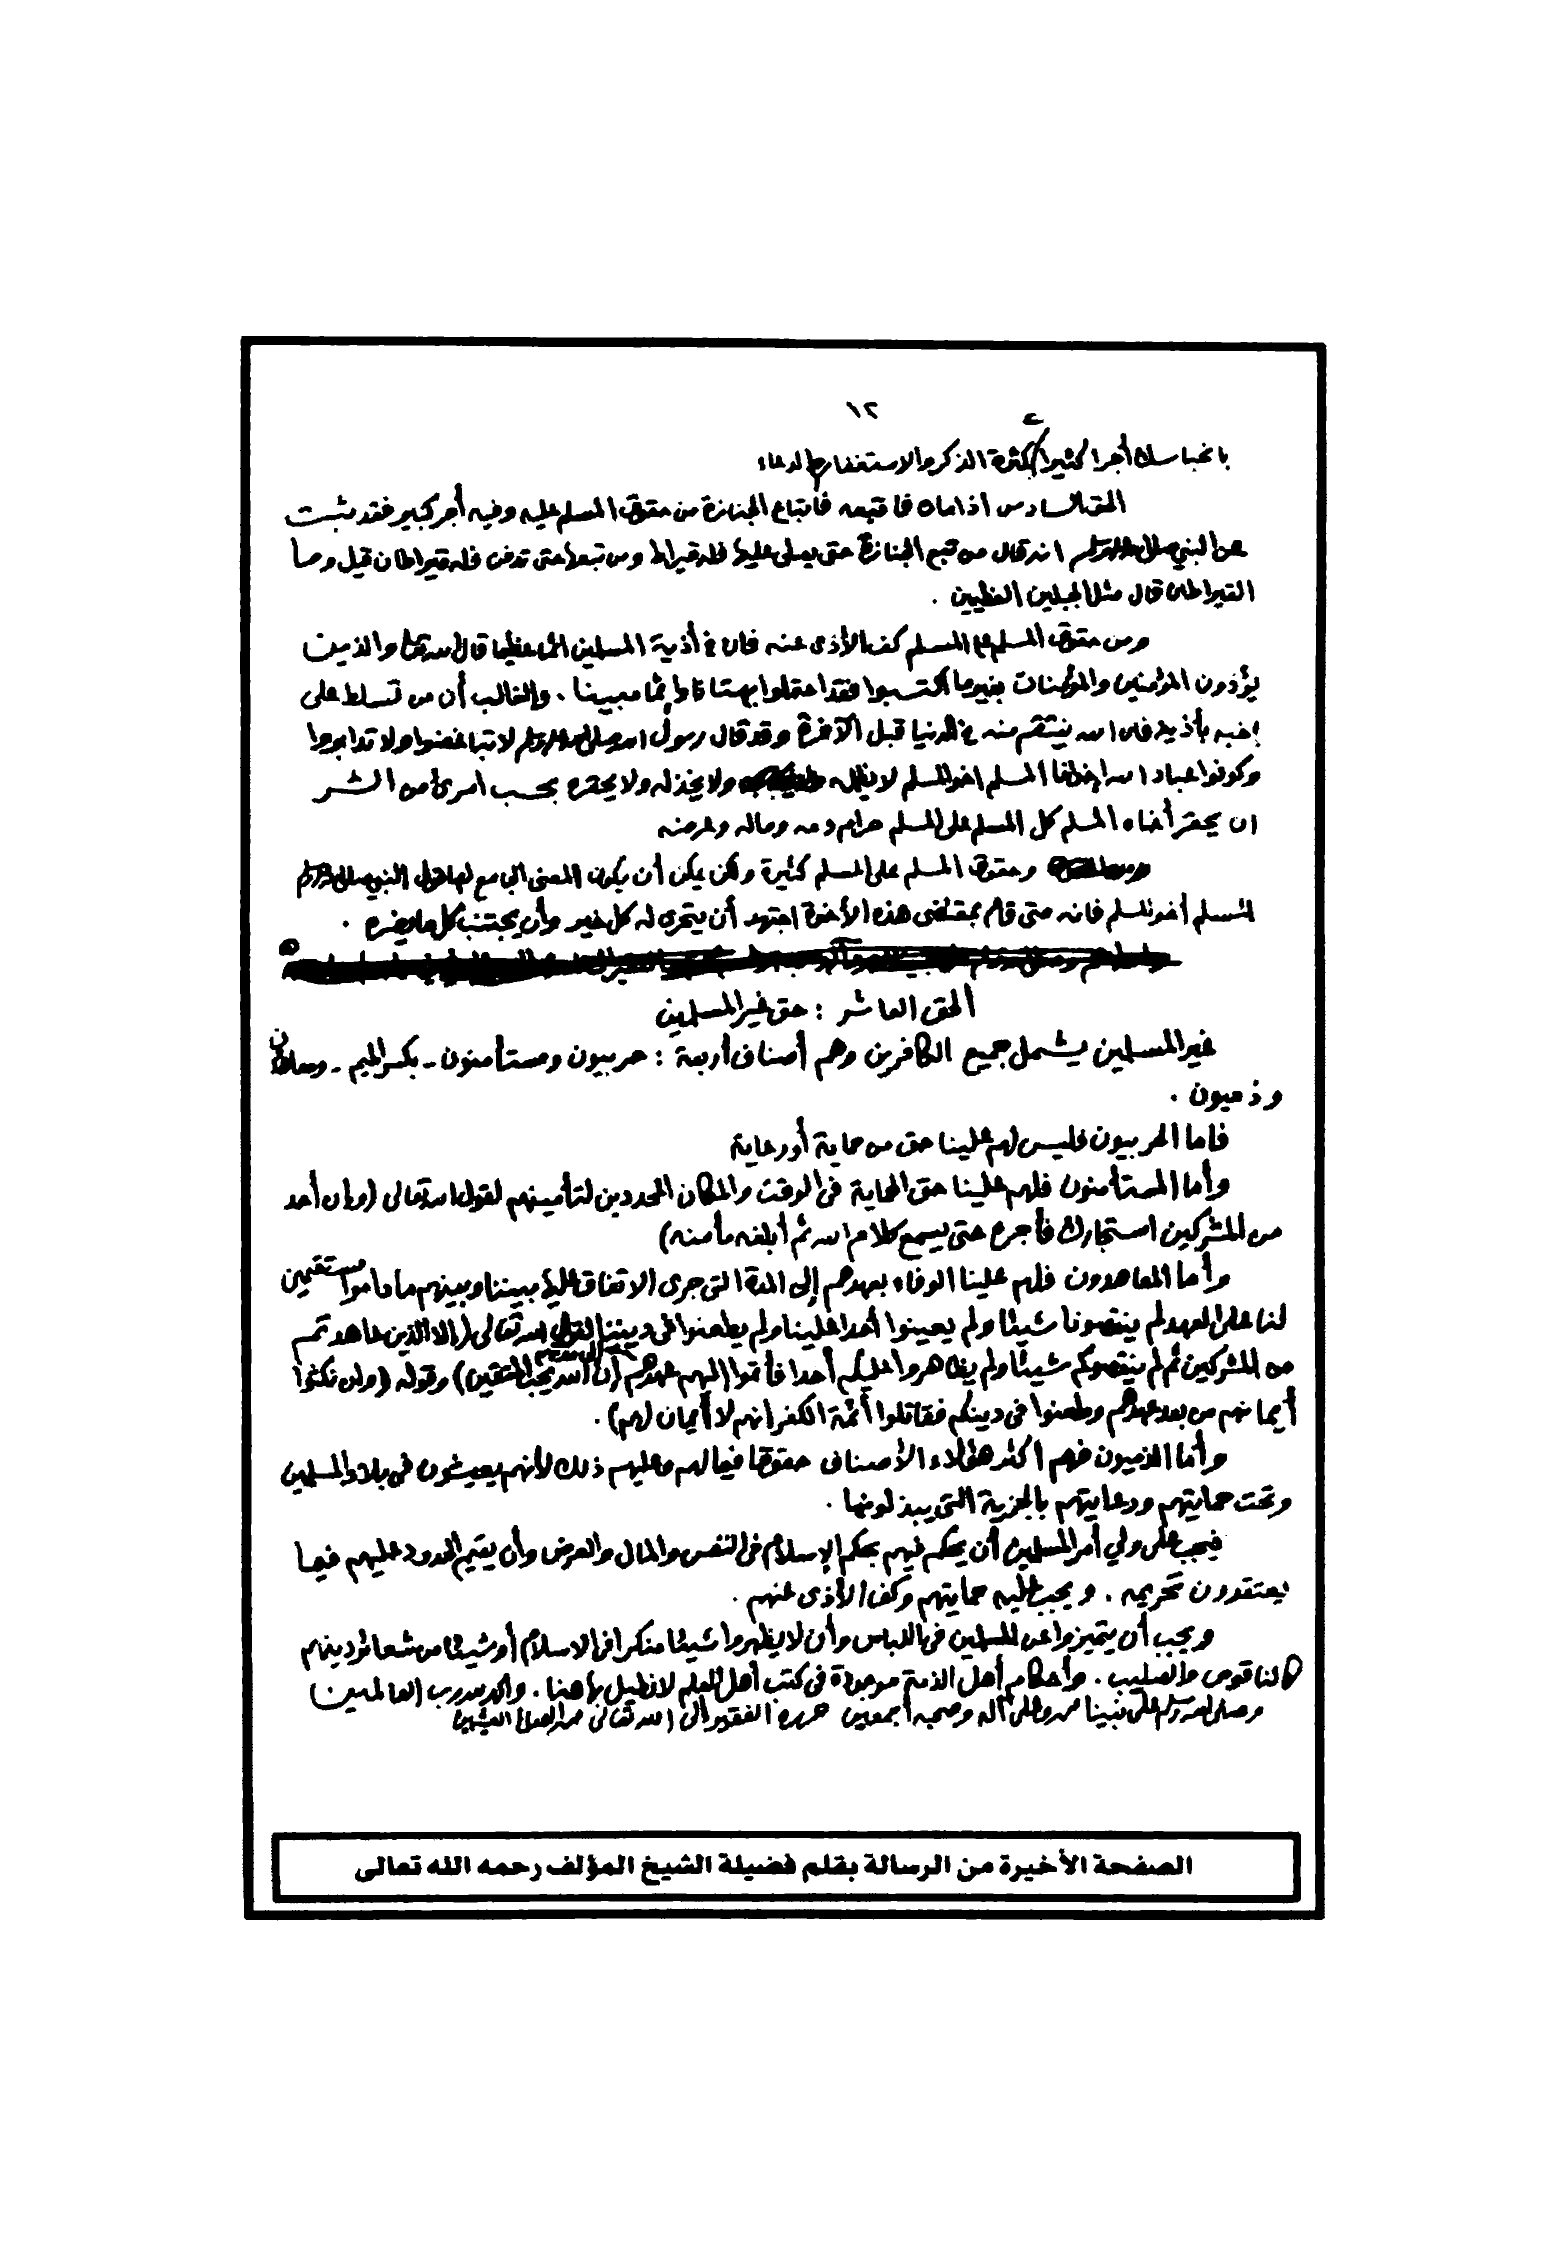 ١٢
بانحباسك أجرا كثيرا بكثرة الذكر والاستغفار والدعاء
الحق السادس اذا مات فاتبعه فاتباع الجنازة من حقوق المسلم عليه وفيه أجر كبير فقد ثبت
عن النبي صلى الله عليه وسلم انه قال من تبع الجنازة حتى يصلى عليها فله قيراط ومن تبعها حتى تدفن فله قيراطان قيل وما
القيراطان قال مثل الجبلين العظيمين .
ومن حقوق المسلم على المسلم كف الأذى عنه فان في أذية المسلمين اثما عظيما قال الله تعالى والذين
يؤذون المؤمنين والمؤمنات بغير ما اكتسبوا فقد احتملوا بهتانا وإثما مبينا . والغالب أن من تسلط على
أخيه بأذية فان الله ينتقم منه في الدنيا قبل الآخرة وقد قال رسول الله صلى الله عليه وسلم لا تباغضوا ولا تدابروا
وكونوا عباد الله إخوانا المسلم اخو المسلم لا يظلمه ولا يخذله ولا يحقره بحسب امرئ من الشر
ان يحقر أخاه المسلم كل المسلم على المسلم حرام دمه وماله وعرضه
وحقوق المسلم على المسلم كثيرة ولكن يمكن أن يكون المعنى الجامع لها قول النبي صلى الله عليه وسلم
المسلم أخو المسلم فانه متى قام بمقتضى هذه الأخوة اجتهد أن يتحرى له كل خير وأن يجتنب كل ما يضره .
الحق العاشر : حق غير المسلمين
غير المسلمين يشمل جميع الكافرين وهم أصناف أربعة : حربيون ومستأمنون - بكسر الميم - ومعاهدون
وذميون .
فاما الحربيون فليس لهم علينا حق من حماية أو رعاية
وأما المستأمنون فلهم علينا حق الحماية في الوقت والمكان المحددين لتأمينهم لقول الله تعالى (وإن أحد
من المشركين استجارك فأجره حتى يسمع كلام الله ثم أبلغه مأمنه)
وأما المعاهدون فلهم علينا الوفاء بعهدهم إلى المدة التي جرى الاتفاق عليها بيننا وبينهم ما داموا مستقيمين
لنا على العهد لم ينقصونا شيئا ولم يعينوا أحدا علينا ولم يطعنوا في ديننا لقول الله تعالى (إلا الذين عاهدتم
من المشركين ثم لم ينقصوكم شيئا ولم يظاهروا عليكم أحدا فأتموا إليهم عهدهم إلى مدتهم إن الله يحب المتقين) وقوله (وإن نكثوا
أيمانهم من بعد عهدهم وطعنوا في دينكم فقاتلوا أئمة الكفر انهم لا أيمان لهم) .
وأما الذميون فهم اكثر هؤلاء الأصناف حقوقا فيما لهم وعليهم ذلك لأنهم يعيشون في بلاد المسلمين
وتحت حمايتهم ورعايتهم بالجزية التي يبذلونها .
فيجب على ولي أمر المسلمين أن يحكم فيهم بحكم الإسلام في النفس والمال والعرض وأن يقيم الحدود عليهم فيما
يعتقدون تحريمه . ويجب عليه حمايتهم وكف الأذى عنهم .
ويجب أن يتميزوا عن المسلمين في اللباس وأن لا يظهروا شيئا منكرا في الاسلام أو شيئا من شعائر دينهم
كالناقوس والصليب . وأحكام أهل الذمة موجودة في كتب أهل العلم لا نطيل بها هنا . والحمد لله رب العالمين
وصلى الله وسلم على نبينا محمد وعلى آله وصحبه أجمعين حرره الفقير الى الله تعالى محمد الصالح العثيمين
الصفحة الأخيرة من الرسالة بقلم فضيلة الشيخ المؤلف رحمه الله تعالى